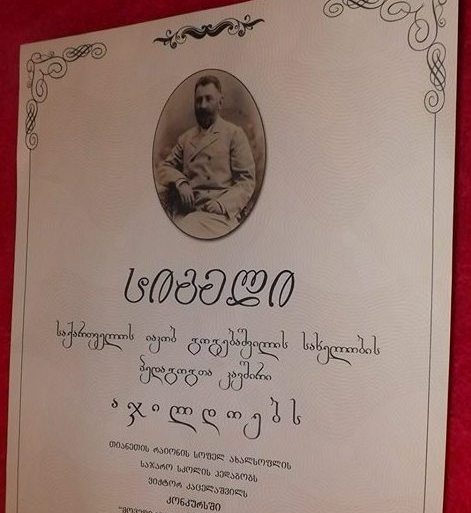 სიგელი
საქართველოს იაკობ გოგებაშვილის სახელობის
პედაგოგთა კავშირი
აჯილდოებს
თიანეთის რაიონის სოფელ ახალსოფლის
საჯარო სკოლის პედაგოგს
ვიქტორ კაცელაშვილს
კონკურსში